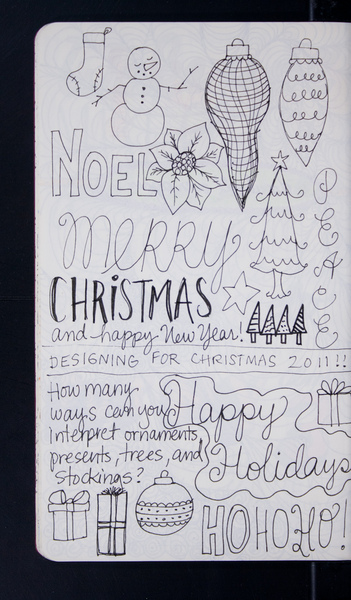 NOEL
merry
CHRISTMAS
and happy New Year!
PEACE
DESIGNING FOR CHRISTMAS 2011!!
How many
ways can you
interpret ornaments,
presents, trees, and
stockings?
Happy
Holidays
HOHOHO!